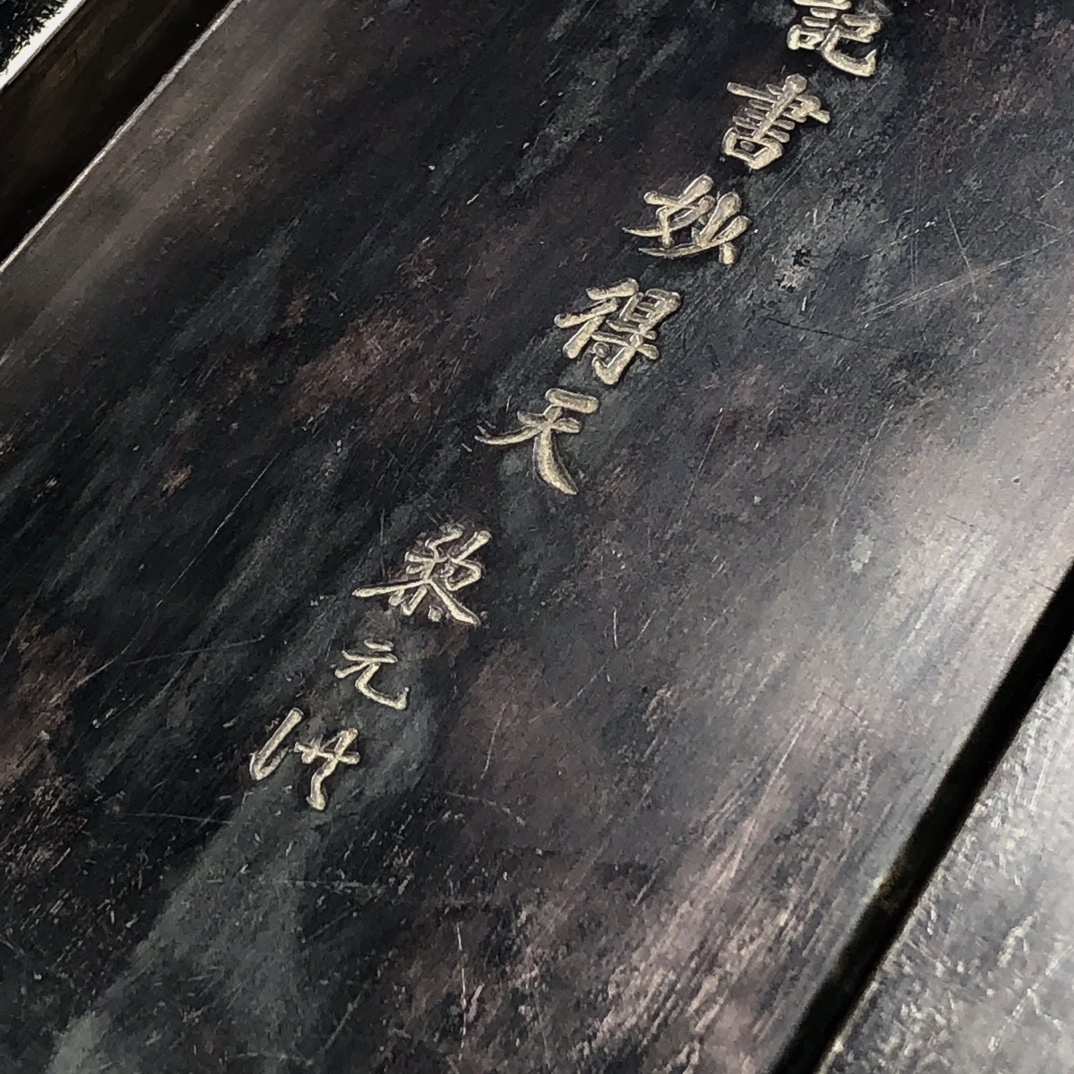 記書妙得天
黎元洪